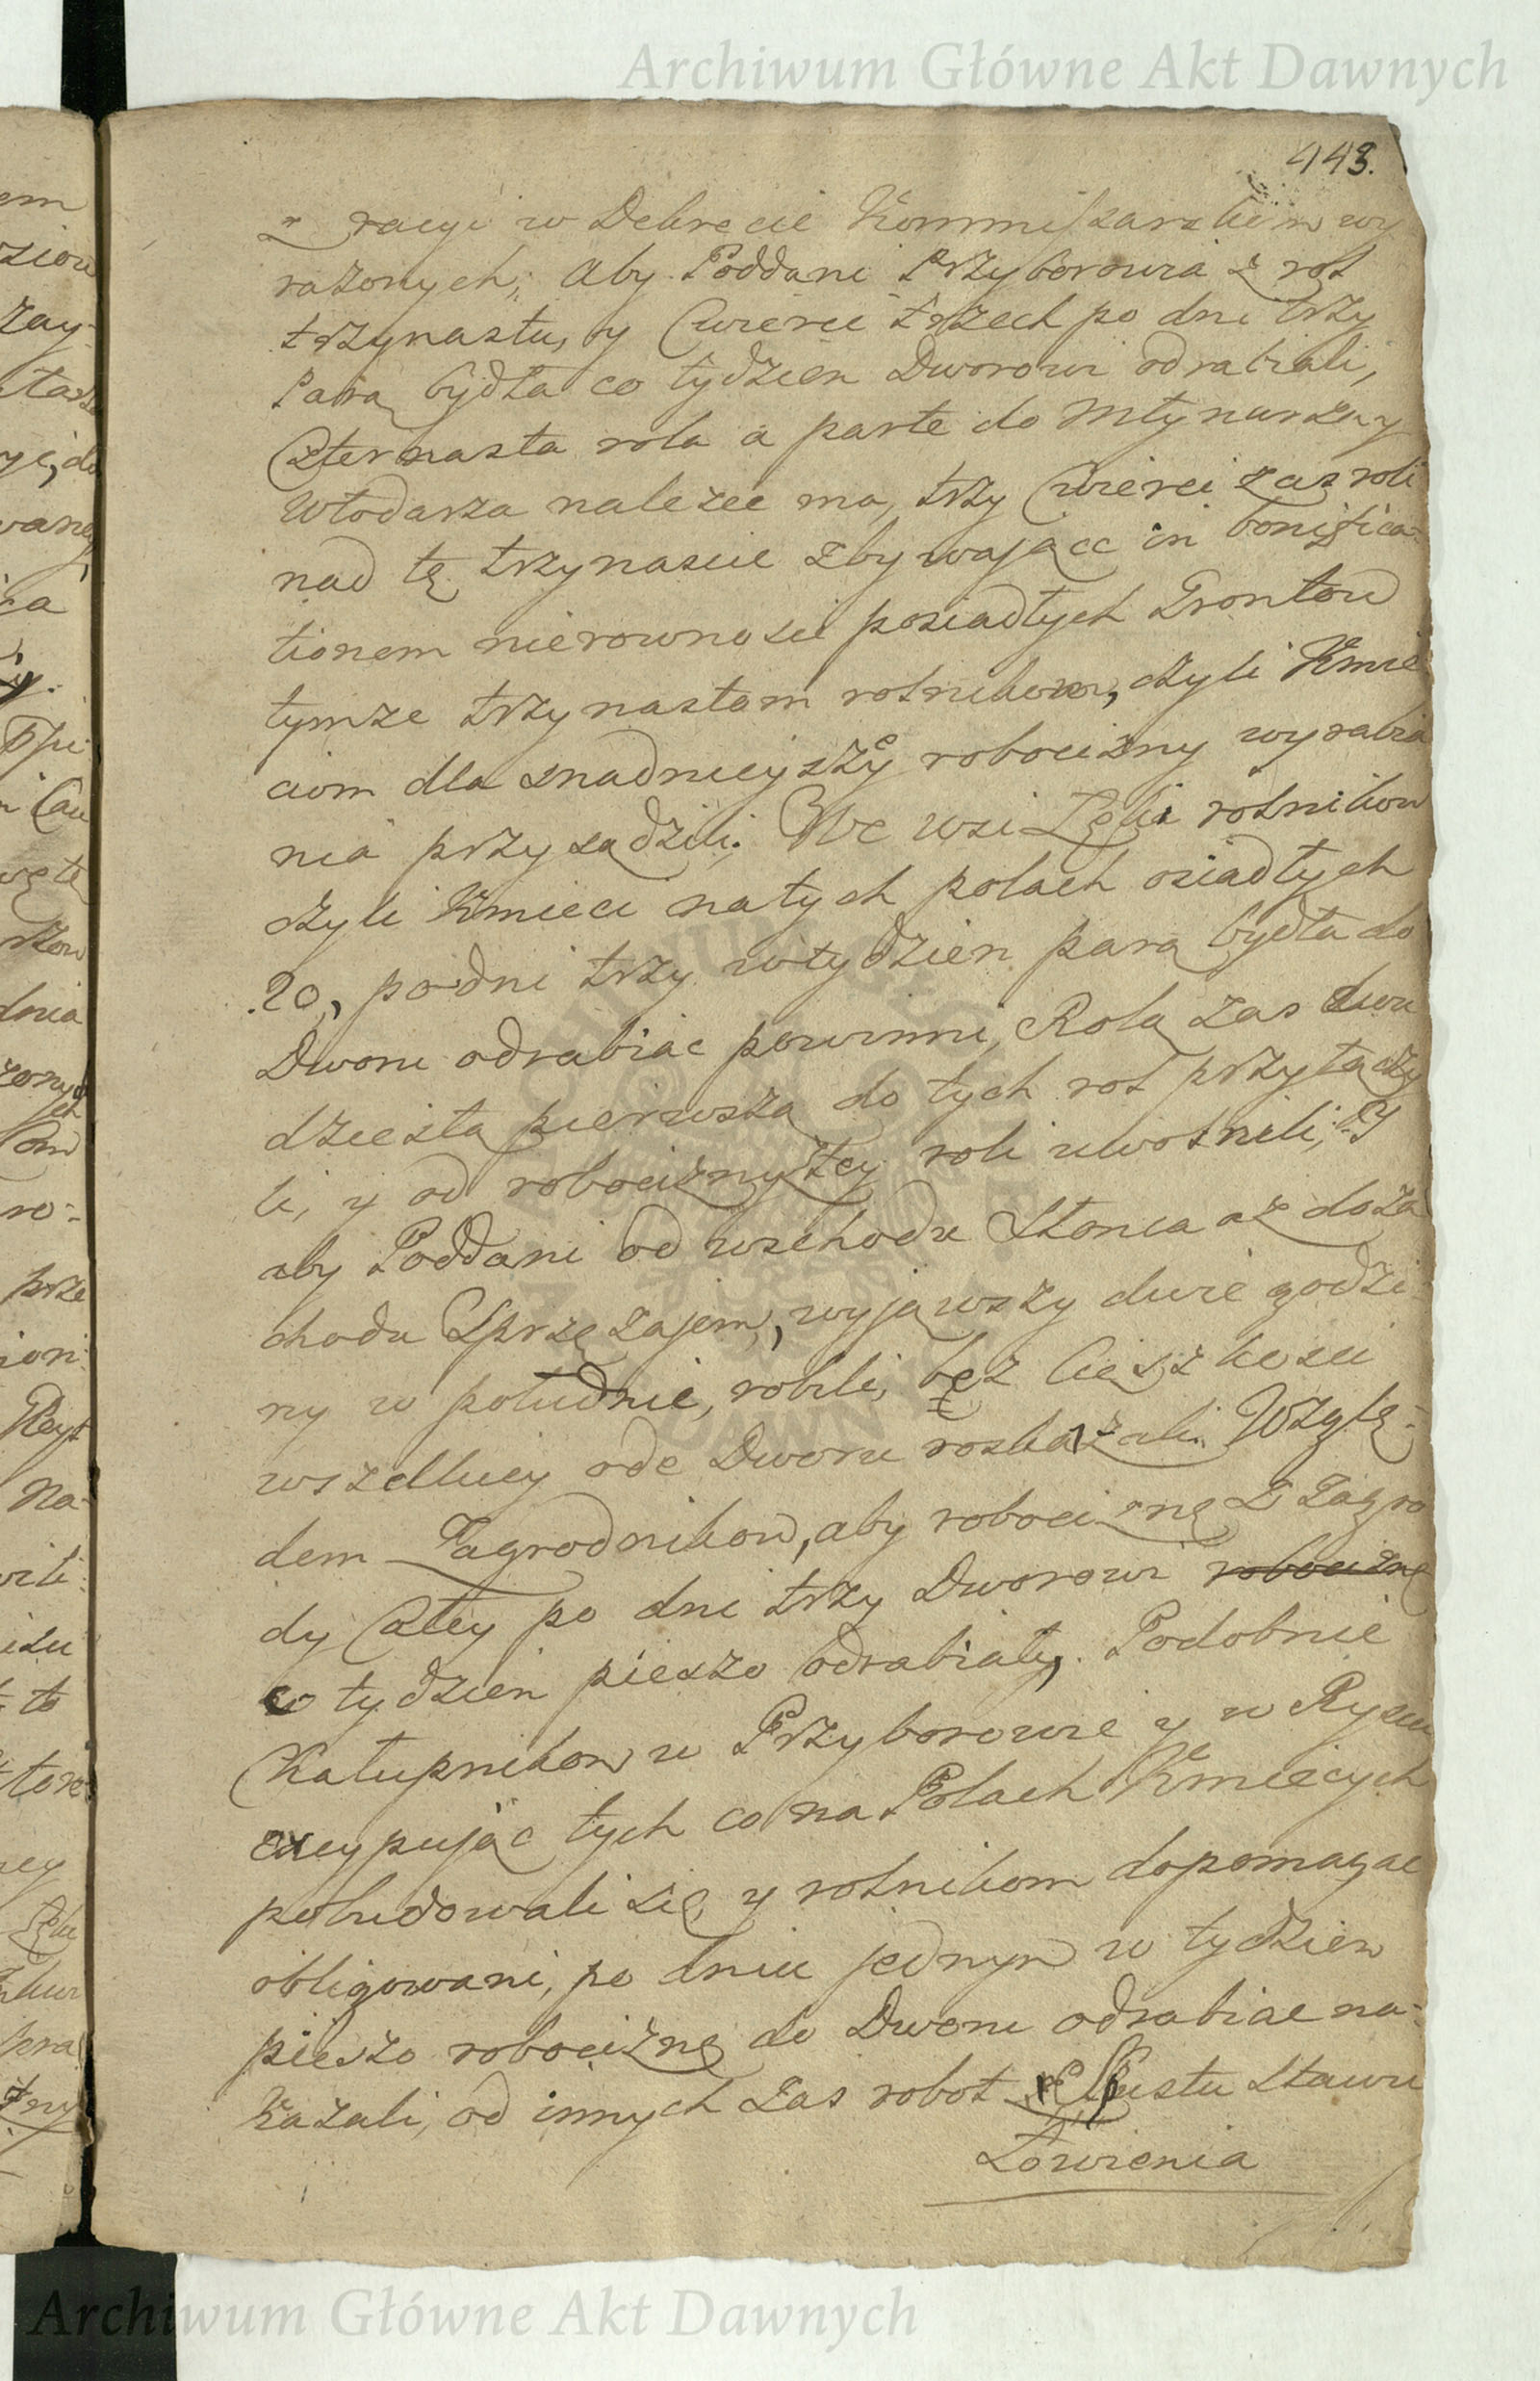 Archiwum Główne Akt Dawnych
443.
z racyi w Dekrecie Kommissarskim wy
rażonych; aby Poddani Przyborowia z rol
trzynastu, y Cwierci trzech po dni trzy
Parą bydła co tydzien Dworowi odrabiali,
Czternasta rola a parte do Młynarza y
Włodarza należec ma, trzy Cwierci zas roli
nad tę trzynascie zbywaiące in bonifica-
tionem nierownosci posiadłych Grontow
tymże trzynastom rolnikom, czyli Kmie
ciom dla snadnieyszy robocizny wyrabia
nia przysądzili. We wsi Łęki rolnikow
czyli Kmieci na tych polach osiadłych
20, po dni trzy w tydzien parą bydła do
Dworu odrabiac powinni, Rolą zas dwu
dziestą pierwszą do tych rol przyłączy
li, y od robocizny tey roli uwolnili; Y
aby Poddani od wschodu Słonca aż do za
chodu Sprzężajem, wyjąwszy dwie godzi
ny w południe, robili, bez Cięszkosci
wszelkiey ode Dworu roskazali. Wzglę-
dem Zagrodnikow, aby robociznę z Zagro
dy Całey po dni trzy Dworowi robociznę
co tydzien pieszo odrabiały. Podobnie
Kałupnikow w Przyborowie y w Rysiu
excypując tych co na Polach Kmiecych
pobudowali się, y rolnikom dopomagac
obligowani, po dniu jednym w tydzien
pieszo robociznę do Dworu odrabiac na-
kazali, od innych zas robot Spustu Stawu
Łowienia
em
zay-
ca
dnia
ro-
prze
Na-
to
Archiwum Główne Akt Dawnych